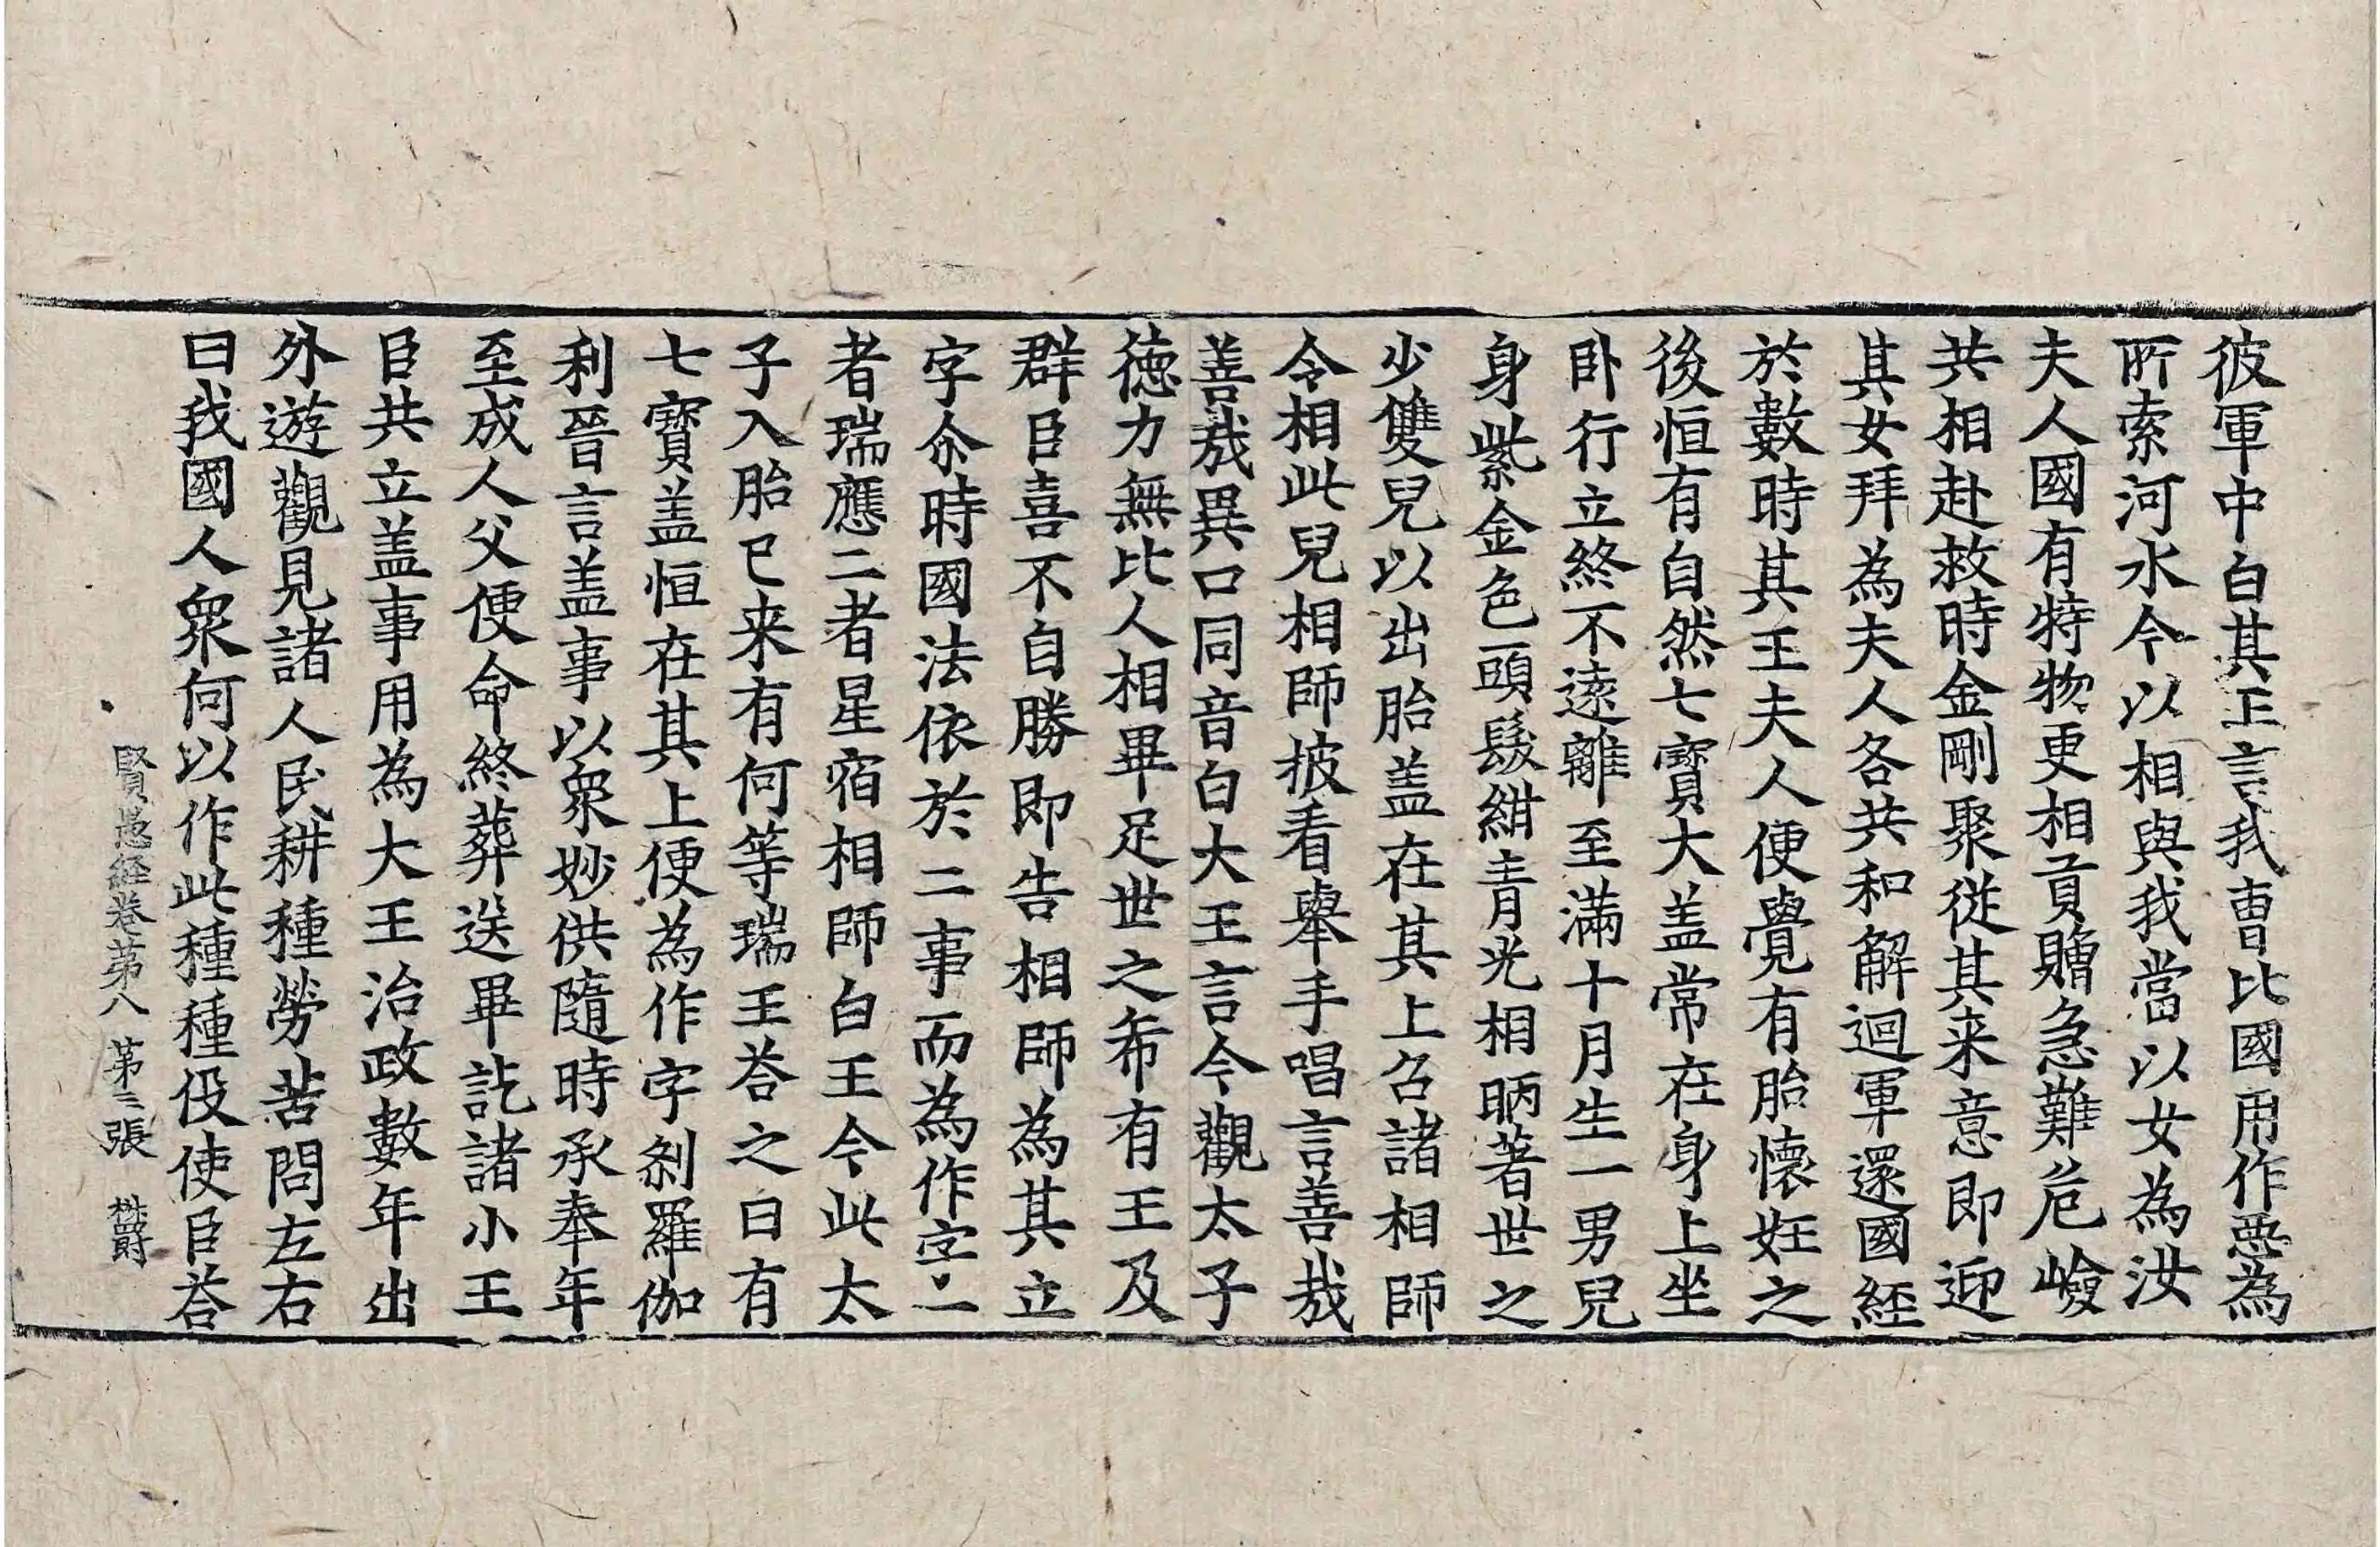 彼軍中白其王言我曹比國用作惡為
所索河水今以相與我當以女為汝
夫人國有特物更相貢贈急難危嶮
共相赴救時金剛聚從其来意即迎
其女拜為夫人各共和解迴軍還國經
於數時其王夫人便覺有胎懷妊之
後恒有自然七寶大盖常在身上坐
卧行立終不遠離至滿十月生一男兒
身紫金色頭髮紺青光相昞著世之
少雙兒以出胎盖在其上召諸相師
令相此兒相師披看舉手唱言善哉
善哉異口同音白大王言今觀太子
德力無比人相畢足世之希有王及
群臣喜不自勝即告相師為其立
字尒時國法依於二事而為作字一
者瑞應二者星宿相師白王今此太
子入胎已来有何等瑞王荅之曰有
七寶盖恒在其上便為作字刹羅伽
利晉言盖事以衆妙供隨時承奉年
至成人父便命終葬送畢訖諸小王
臣共立盖事用為大王治政數年出
外遊觀見諸人民耕種勞苦問左右
曰我國人衆何以作此種種役使臣荅
賢愚經卷第八 第二張